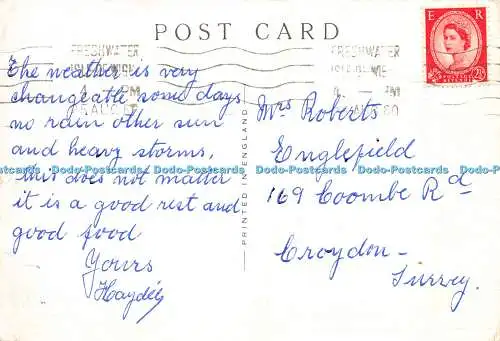 POST CARD
FRESHWATER
FRESHWATER
E R
The weather is very
changeable some days
no rain other sun
and heavy storms,
this does not matter
it is a good rest and
good food
Yours
PRINTED IN ENGLAND
Mrs Roberts
Englefield
169 Coombe Rd
Croydon-
Surrey.
Dodo-Postcards Dodo-Postcards Dodo-Postcards Dodo-Postcards Dodo-Postcards